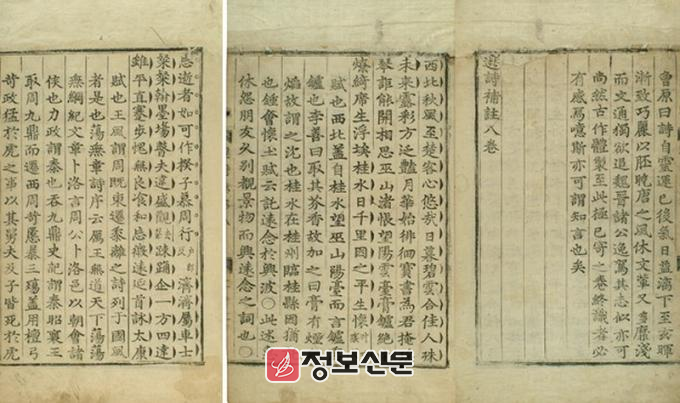 曾原曰詩自靈運已後氣日益漓下至玄暉
漸致巧麗以胚晚唐之風休文輩又多靡淺
而文通獨欲追魏晉諸公逸駕其志似亦可
尚然古作體製至此極已寄之卷終識者必
有感焉噫斯亦可謂知言也矣
選詩補註八卷
西北秋風至楚客心悠哉日暮碧雲合佳人殊
未來露彩方泛艷月華始徘徊寶書為君掩
琴詎能開相思巫山渚悵望陽雲臺膏鑪絕
燎綺席生浮埃桂水日千里因之平生懷
賦也西北蓋自桂水望巫山陽臺而言鑪
鑪也李善曰取其芬香故加之曰膏有煙
焰故謂之沈也桂水在桂州臨桂縣因猶
也鍾會懷士賦云託遠念於興波○此述
休怨朋友久別覩景物而興遠念之詞也○
志逝者如可作揆子慕周行 濟濟屬車士
粲粲翰墨場瞽夫違盛觀 竦踊企一方四達
雖平直蹇步愧無良飡和忘微遠延首詠太康
賦也王風謂周既東遷黍離之詩列于國風
者是也蕩無章詩序云厲王無道天下蕩蕩
無綱紀文章卜洛言周公卜洛邑以朝會諸
侯也力政謂秦也吞九鼎史記謂秦昭襄王
取周九鼎而遷西周苛慝暴三殤蓋用檀弓
苛政猛於虎之事以其舅夫及子皆死於虎
정보신문